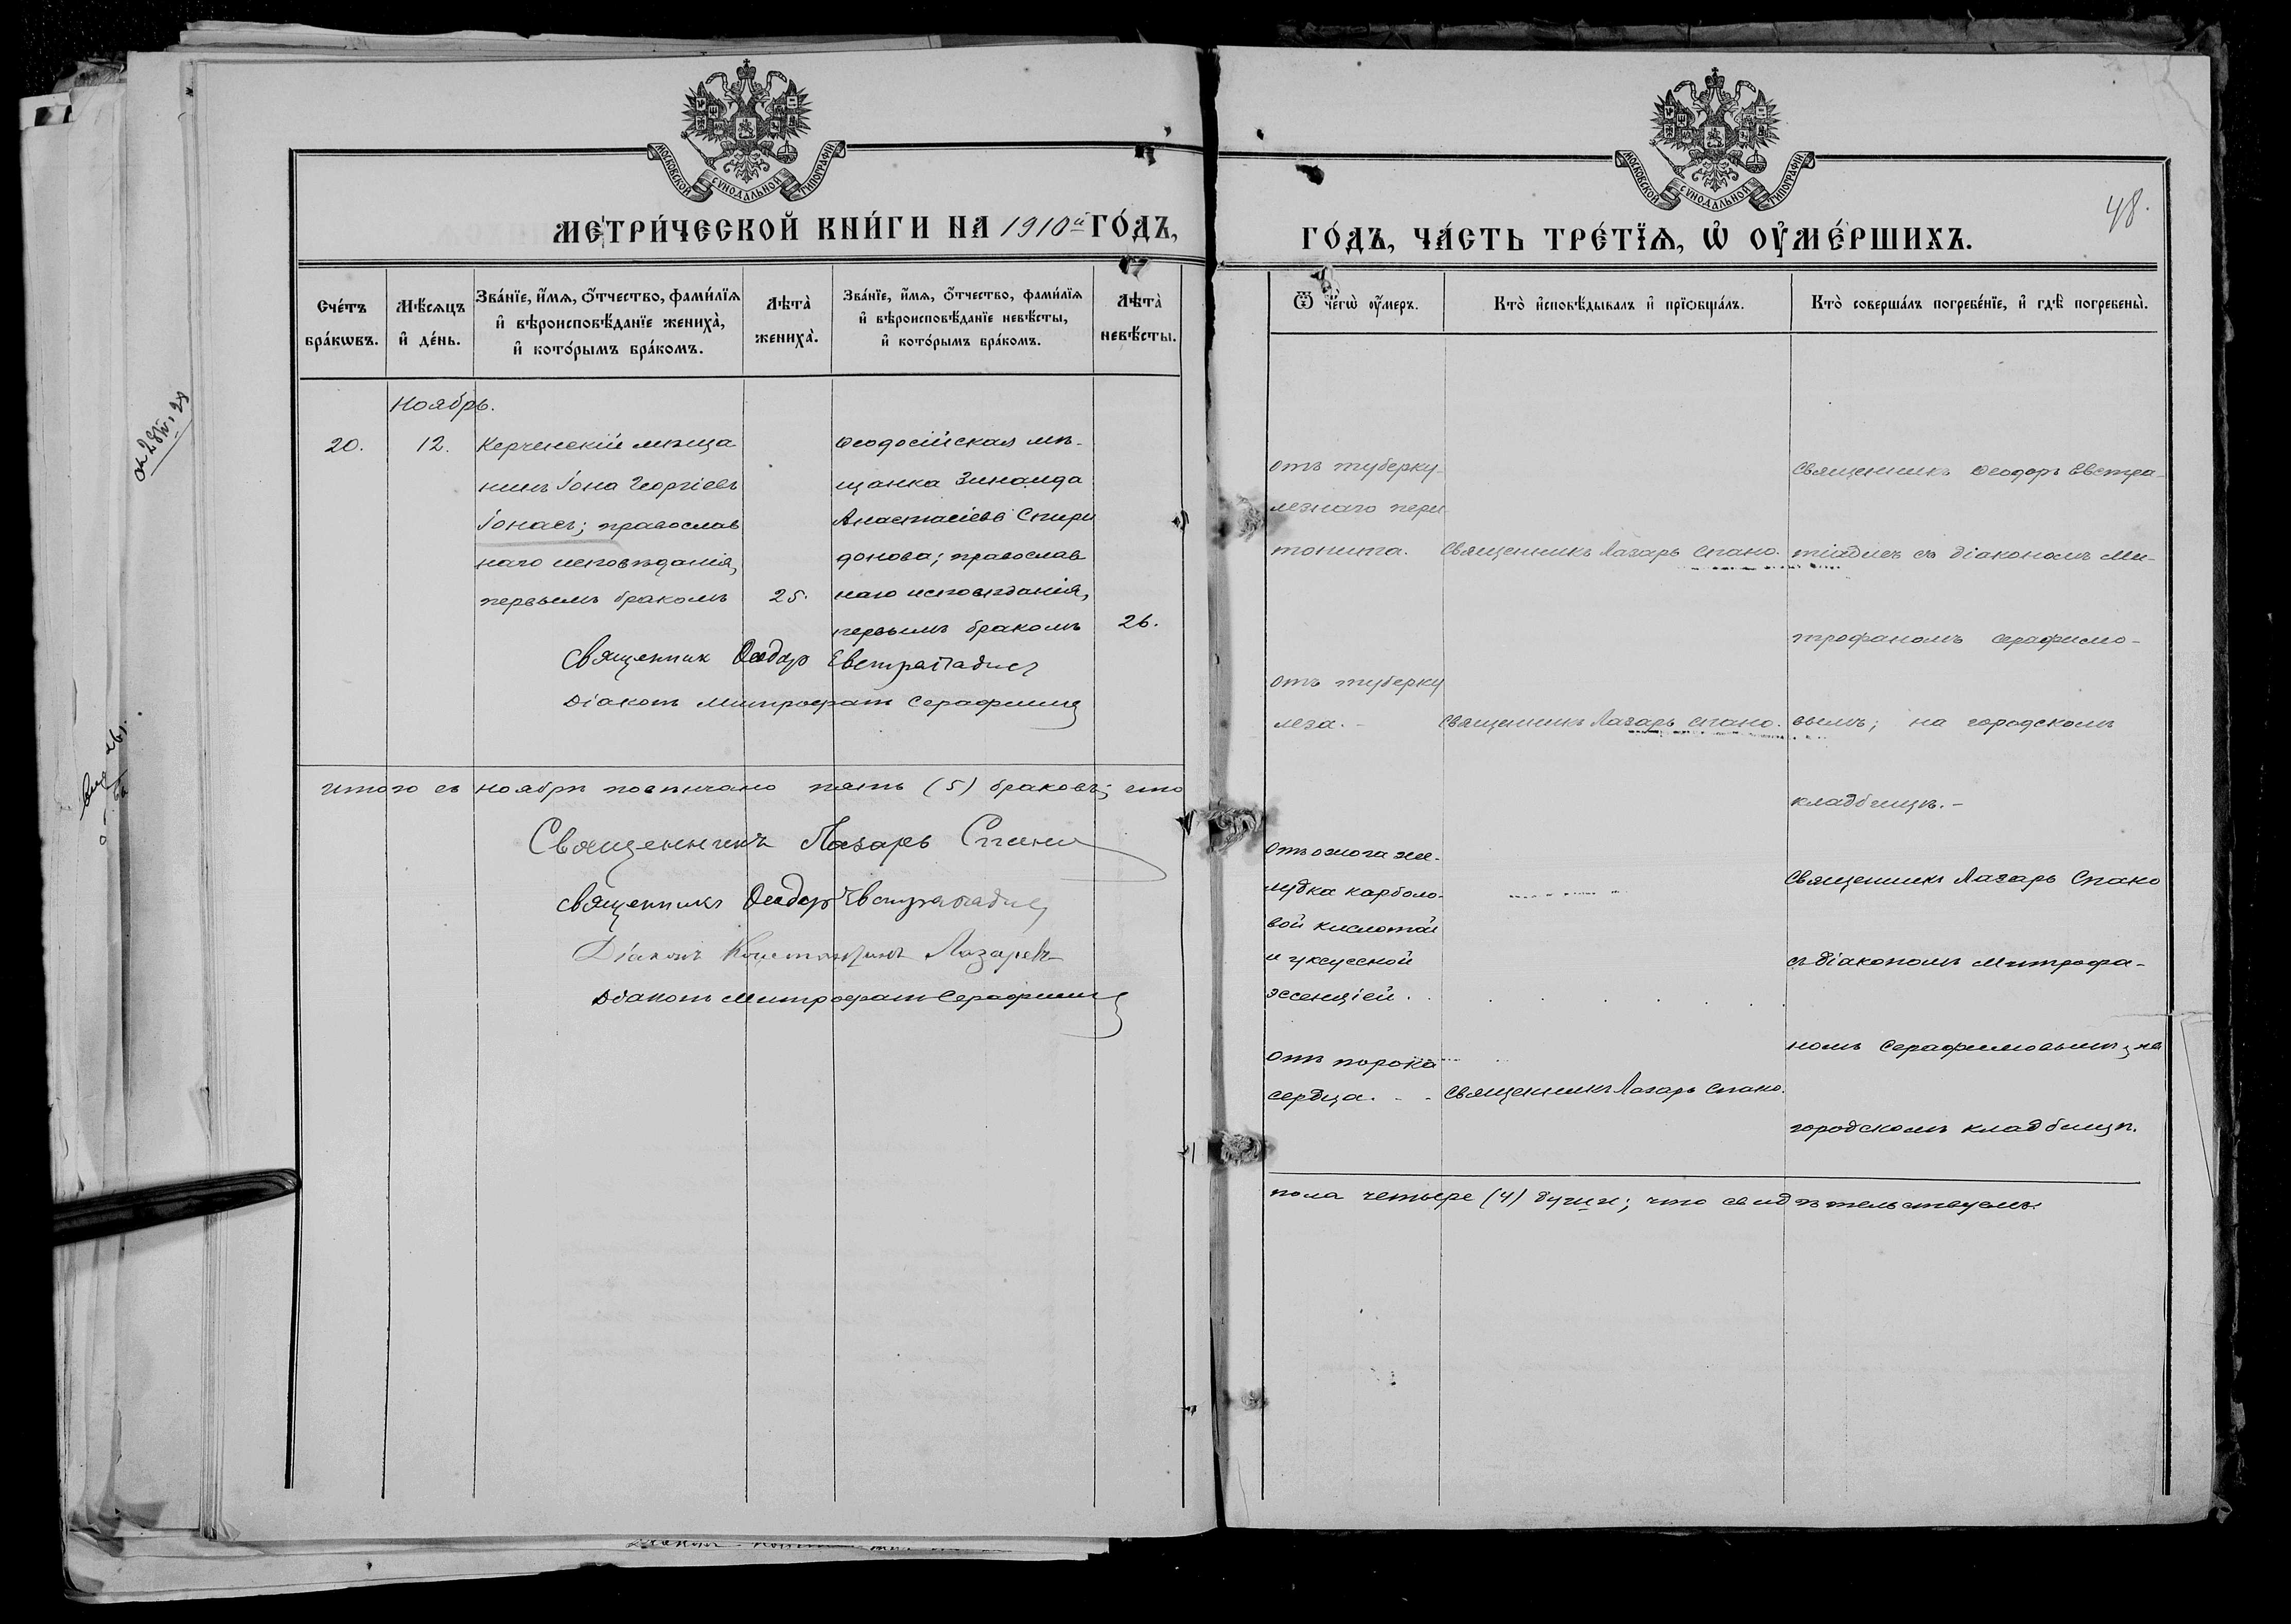 МОСКОВСКОЙ СѴНОДАЛЬНОЙ ТИПОГРАФІИ
МЕТРИ́ЧЕСКОЙ КНИ́ГИ НА 1910й ГО́ДЪ,
Сче́тъ бра́кѡвъ.
Мѣ́сяцъ и҆ де́нь.
Зва́нїе, и҆́мѧ, ѻ҆́тчество, фами́лїѧ
и҆ вѣроисповѣ́данїе жениха̀,
и҆ кото́рымъ бра́комъ.
Лѣта̀ жениха̀.
Зва́нїе, и҆́мѧ, ѻ҆́тчество, фами́лїѧ
и҆ вѣроисповѣ́данїе невѣ́сты,
и҆ кото́рымъ бра́комъ.
Лѣта̀ невѣ́сты.
Ноябрь.
20.
12.
Керченскій мѣща
нинъ Іона Георгіевъ
Іонасъ; православ
наго исповѣданія,
первымъ бракомъ
25.
Ѳеодосійская мѣ-
щанка Зинаида
Анастасіева Спири
донова; православ
наго исповѣданія,
первымъ бракомъ
26.
Священник Ѳеодор Евстратіадисъ
Діаконъ Митрофанъ Серафимовъ
Итого въ ноябрѣ повѣнчано пять (5) браковъ; что
Священникъ Лазарь Спано
Священникъ Ѳеодор Евстратіадисъ
Діаконъ Константинъ Лазаревъ
Діаконъ Митрофанъ Серафимовъ
МОСКОВСКОЙ СѴНОДАЛЬНОЙ ТИПОГРАФІИ
48.
ГО́ДЪ, ЧА́СТЬ ТРЕ́ТЇѦ, Ѡ҆ ОУ҆МЕ́РШИХЪ.
Ѿ чегѡ̀ оу҆́меръ.
Кто̀ и҆сповѣ́дывалъ и҆ прїѡбща́лъ.
Кто̀ соверша́лъ погребе́нїе, и҆ гдѣ̀ погребены̀.
отъ туберку-
лезнаго пери
тонита.
Священникъ Лазарь Спано.
Священникъ Ѳеодоръ Евстра-
тіадисъ съ діакономъ Ми-
трофаномъ Серафимо-
вымъ; на городскомъ
кладбищѣ.-
отъ туберку
леза.-
Священникъ Лазарь Спано.
отъ ожога же-
лудка карболо-
вой кислотой
и уксусной
эссенціей.
Священникъ Лазарь Спано
съ діакономъ Митрофа-
номъ Серафимовымъ, на
городскомъ кладбищѣ.
отъ порока
сердца.
Священникъ Лазарь Спано.
пола четыре (4) души; что свидѣтельствуемъ.